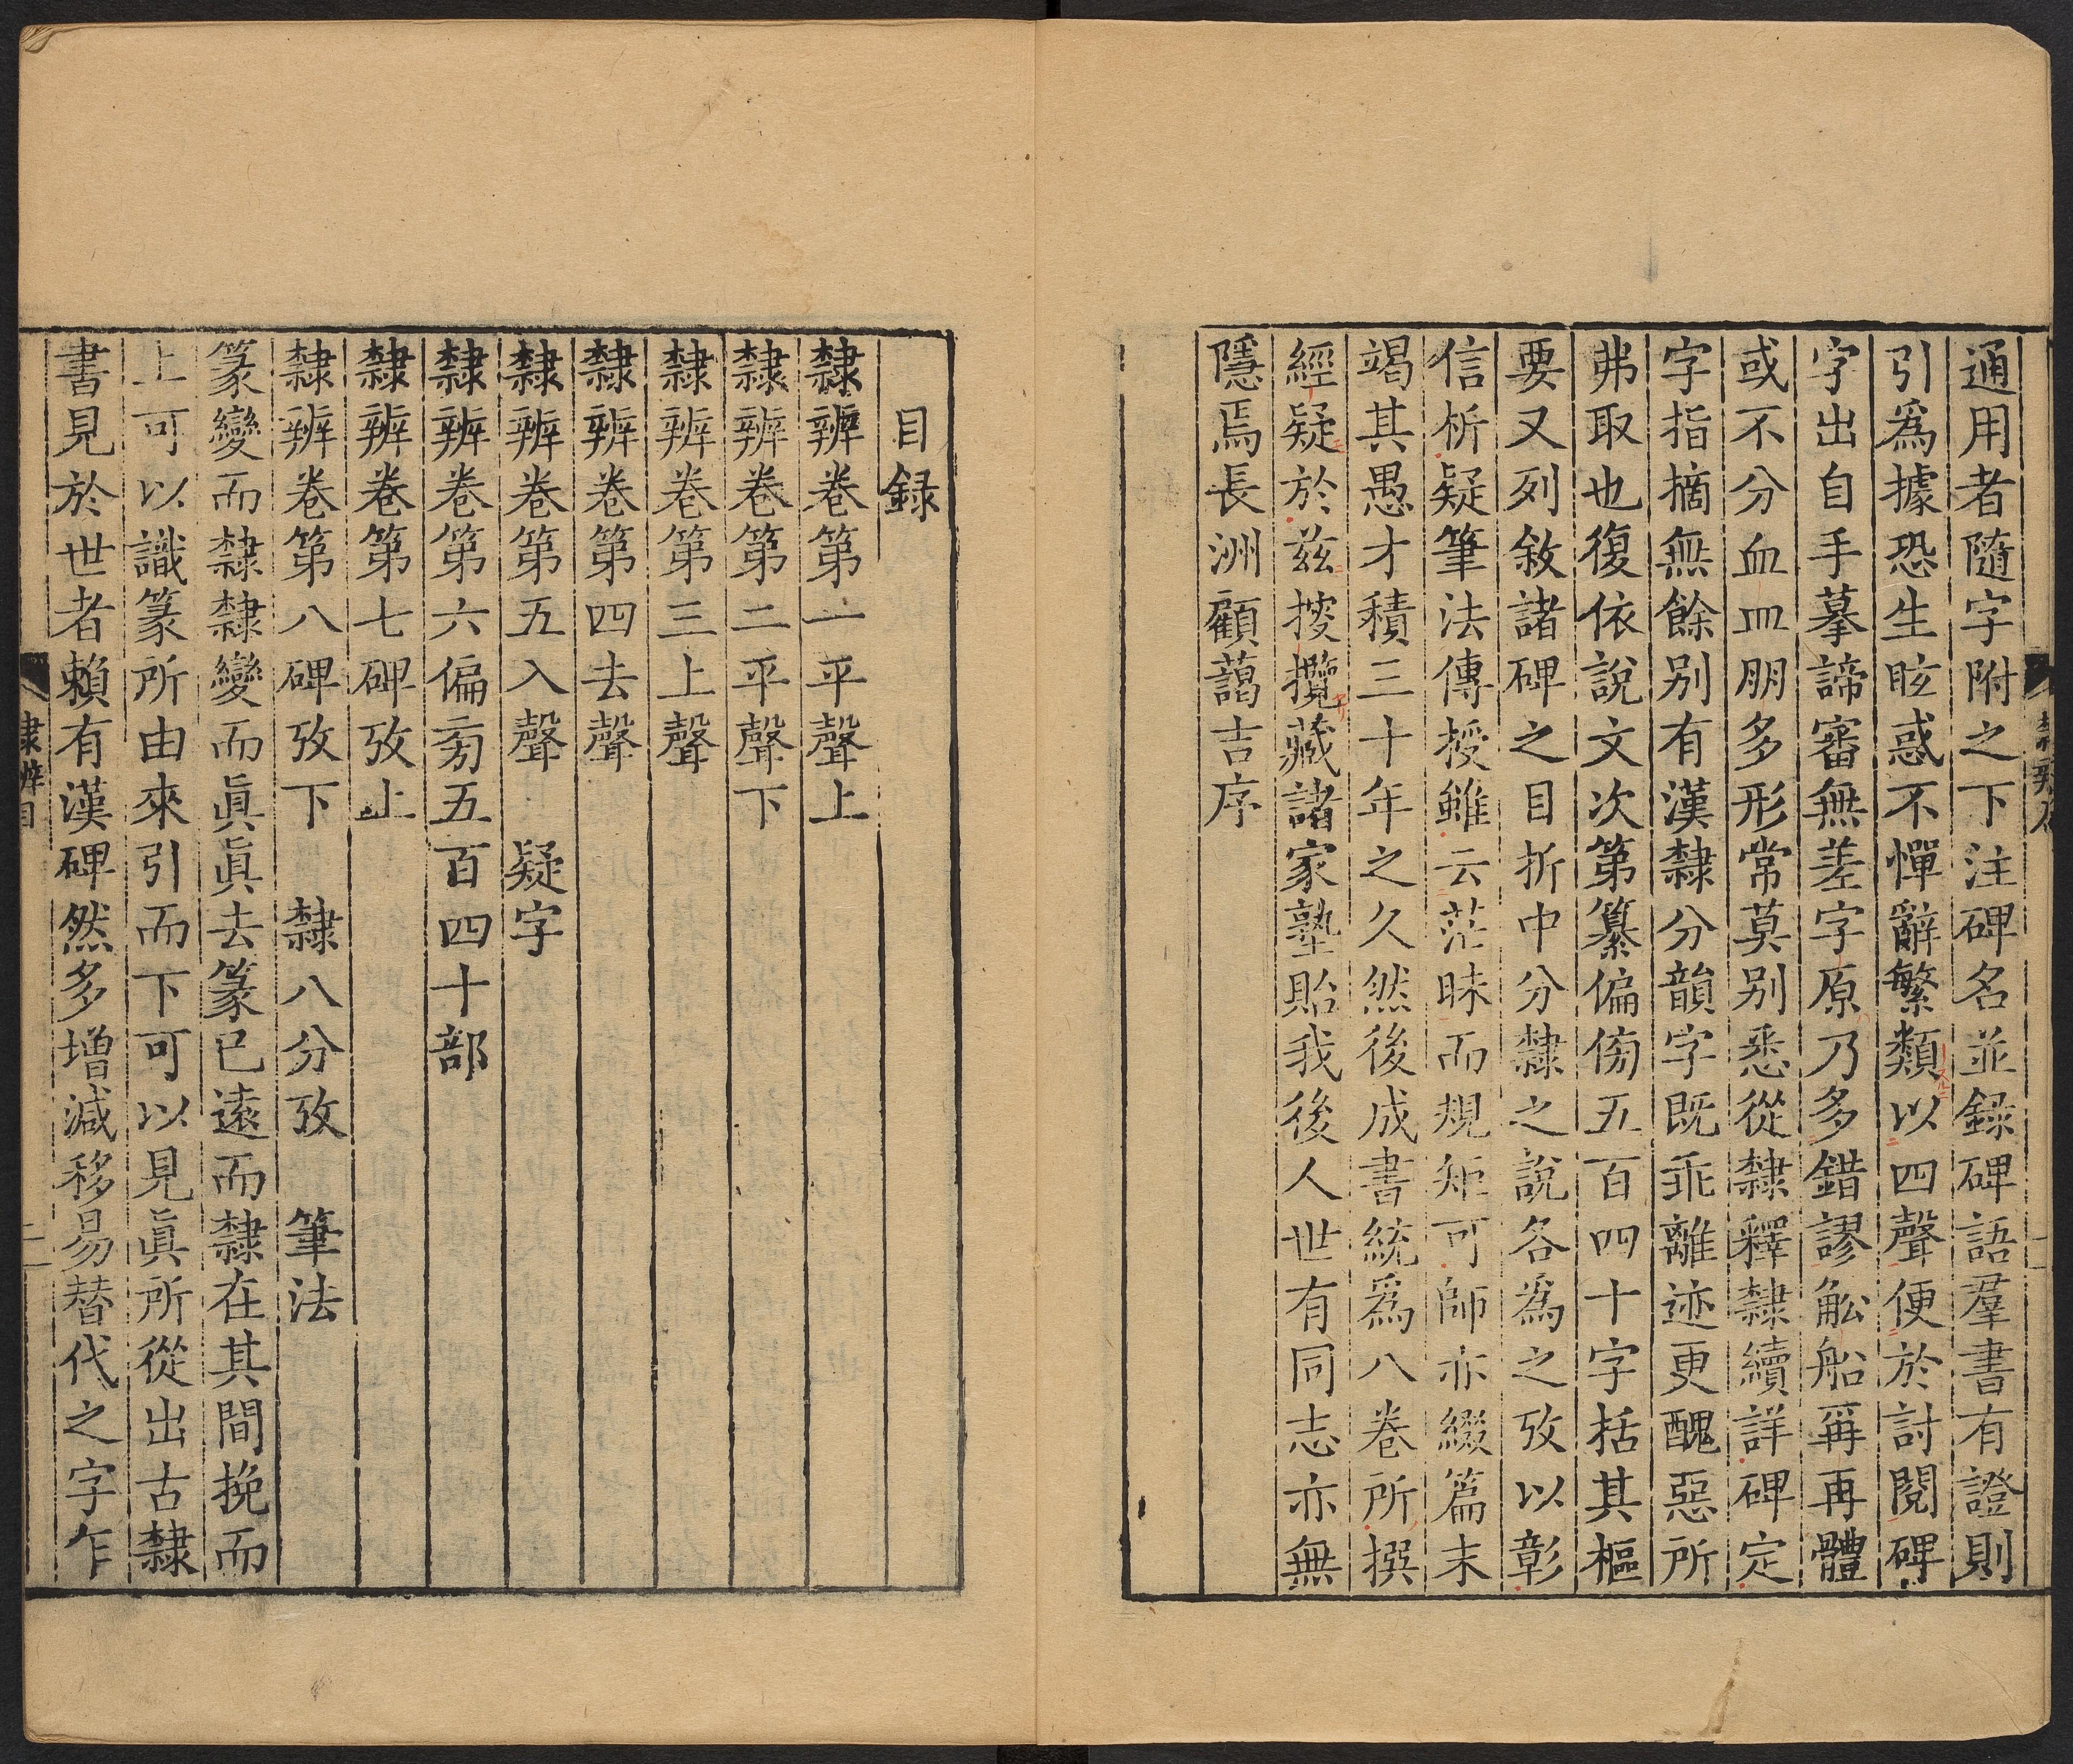 通用者隨字附之下注碑名並録碑語羣書有證則
引爲據恐生眩惑不憚辭繁類以四聲便於討閱碑
字出自手摹諦審無差字原乃多錯謬舩船再再體
或不分血皿朋多形常莫别悉從隸釋隸續詳碑定
字指摘無餘别有漢隸分韻字既乖離迹更醜惡所
弗取也復依說文次第纂偏傍五百四十字括其樞
要又列敘諸碑之目折中分隸之說各爲之攷以彰
信析疑筆法傳授雖云茫昧而規矩可師亦綴篇末
竭其愚才積三十年之久然後成書統爲八卷所撰
經疑於兹揬攬藏諸家塾貽我後人世有同志亦無
隱焉長洲顧藹吉序
目録
隸辨卷第一平聲上
隸辨卷第二平聲下
隸辨卷第三上聲
隸辨卷第四去聲
隸辨卷第五入聲 疑字
隸辨卷第六偏旁五百四十部
隸辨卷第七碑攷上
隸辨卷第八碑攷下 隸八分攷 筆法
篆變而隸隸變而眞眞去篆已遠而隸在其間挽而
上可以識篆所由來引而下可以見眞所從出古隸
書見於世者賴有漢碑然多增減移易替代之字乍
隸辨目
二